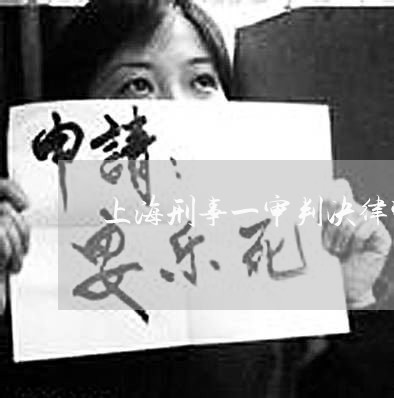 申請：
上海刑事一审判决律
安乐死